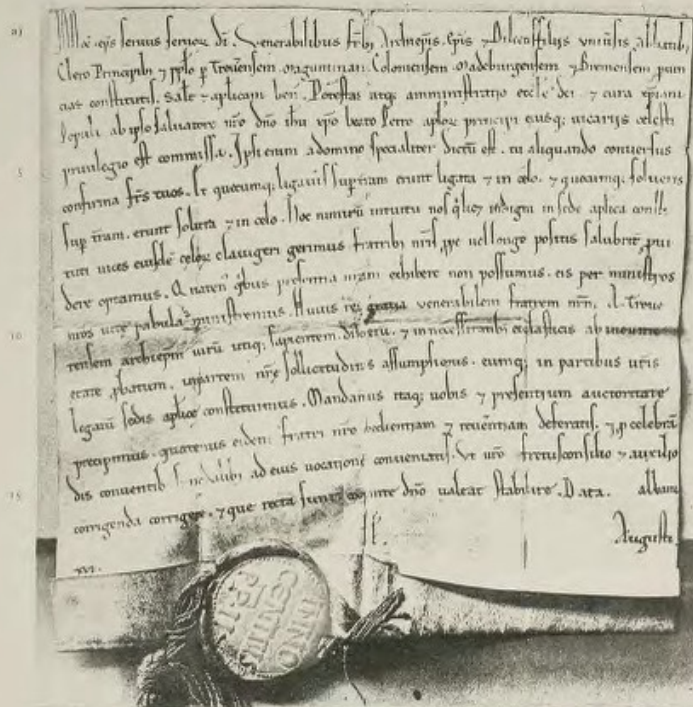 a)
eps servus servor dī. Venerabilibus frīb; Archiepīs. Epīs ⁊ Dilectis filiis abbatib;
Clero Principib; ⁊ pplo p Treverensem. Maguntinam. Coloniensem. Madeburgensem ⁊ Bremensem
cias constitutis. Salt ⁊ aplicam ben. Potestas atq; amministratio eccle dei ⁊ cura
populi ab ipso salvatore nro dno ihu xpo beato Petro aplor principi eiusq; vicariis celesti
privilegio est commissa. Ipsi enim a domino specialiter dictum est. tu aliquando conversus
5
confirma frs tuos. Et quecumq; ligaveris sup tram erunt ligata ⁊ in celo. ⁊ quecumq; solveris
sup tram. erunt soluta ⁊ in celo. Hoc nimirum intuitu nos licet indigni in sede aplica consti
tuti vices eiusde celor clavigeri gerimus fratrib; nris, ppe vel longe positis salubrit pvi
dere optamus. Quaten quib; presentia nram exhibere non possumus. eis per ministros
nros vite pabula ministremus. Huius rei gratia venerabilem fratrem nrm. A. Treve
10
rensem archiepm virum utiq; sapientem. discretu. ⁊ in necessitatib; ecclasticis ab ineunte
etate pbatum. in partem nre sollicitudinis assumpsimus. eumq; in partibus vris
legatu sedis aplice constituimus. Mandamus itaq; vobis ⁊ presentium auctoritate
precipimus. quatenus eidem fratri nro obedientiam ⁊ reverentiam deferatis. ⁊ p celebran
dis conventib; ad eius vocatione conveniatis. Ut vro fretus consilio ⁊ auxilio
15
corrigenda corrigere. ⁊ que recta sunt dno valeat stabilire. Data. albani
Augusti
xvi.
INNO
CENTIUS
PP. II.